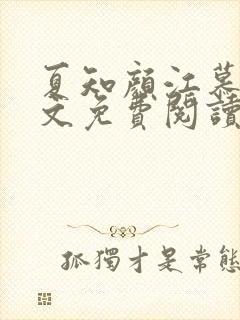 夏知顏江慕
文免費閱讀
孤獨才是常態